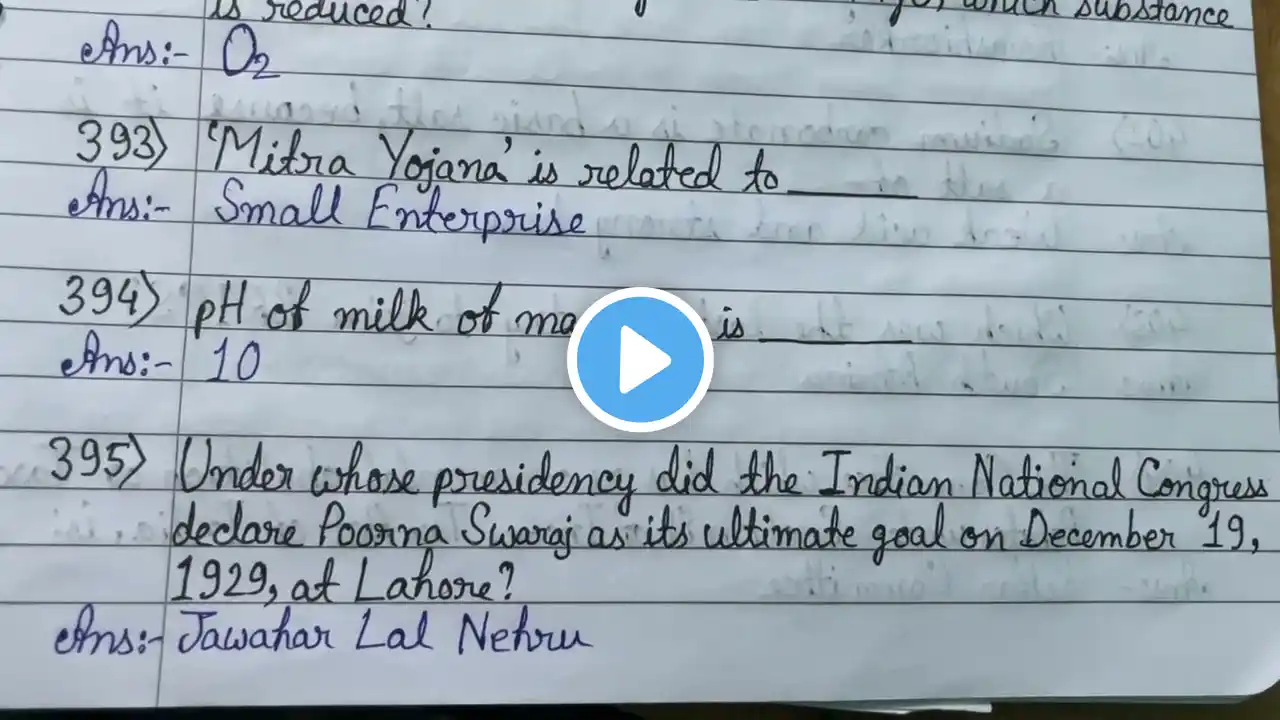 is reduced? which substance
Ans:- O2
393) 'Mitra Yojana' is related to ______
Ans:- Small Enterprise
394) pH of milk of is ______
Ans:- 10
395) Under whose presidency did the Indian National Congress
declare Poorna Swaraj as its ultimate goal on December 19,
1929, at Lahore?
Ans:- Jawahar Lal Nehru